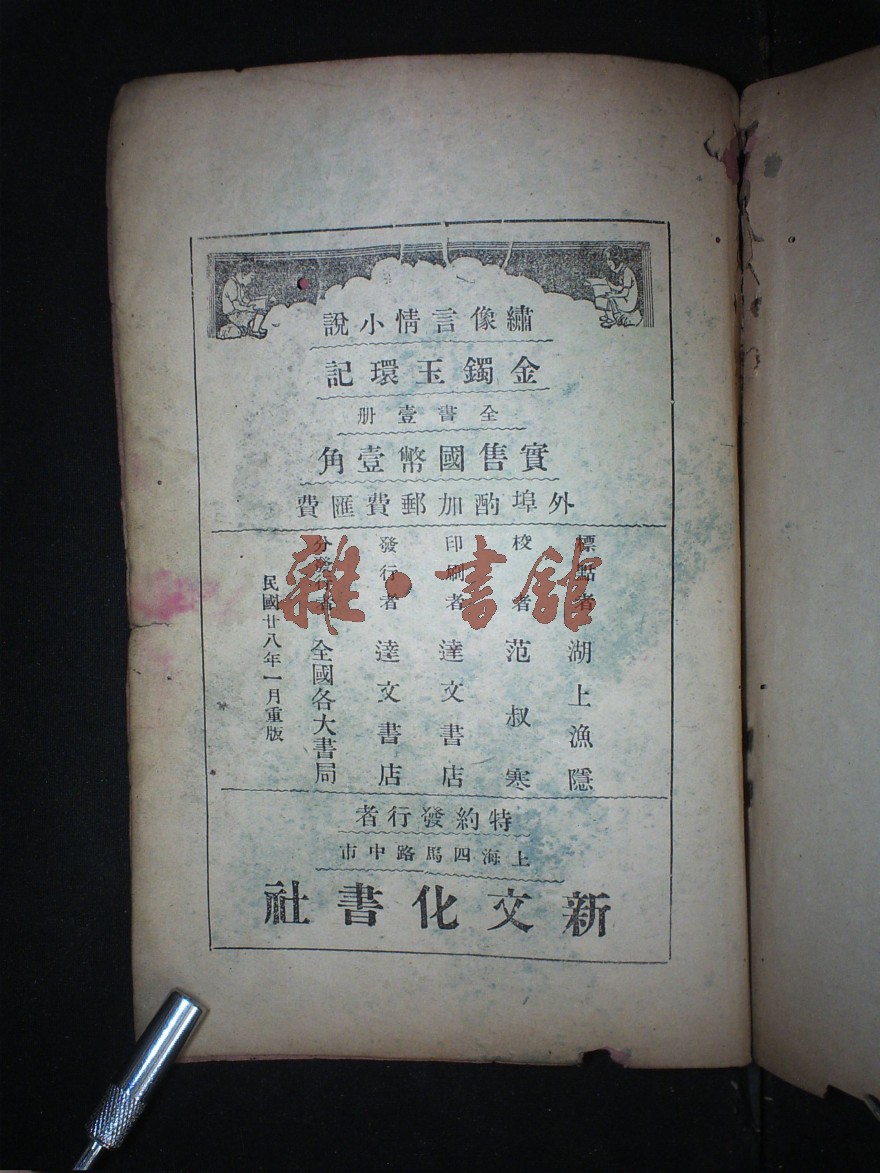 繡像言情小說
金鐲玉環記
全書壹册
實售國幣壹角
外埠酌加郵費匯費
標點者 湖上漁隱
校者 范叔寒
印刷者 達文書店
發行者 達文書店
分發行者 全國各大書局
民國廿八年一月重版
特約發行者
上海四馬路中市
新文化書社
雜·書館